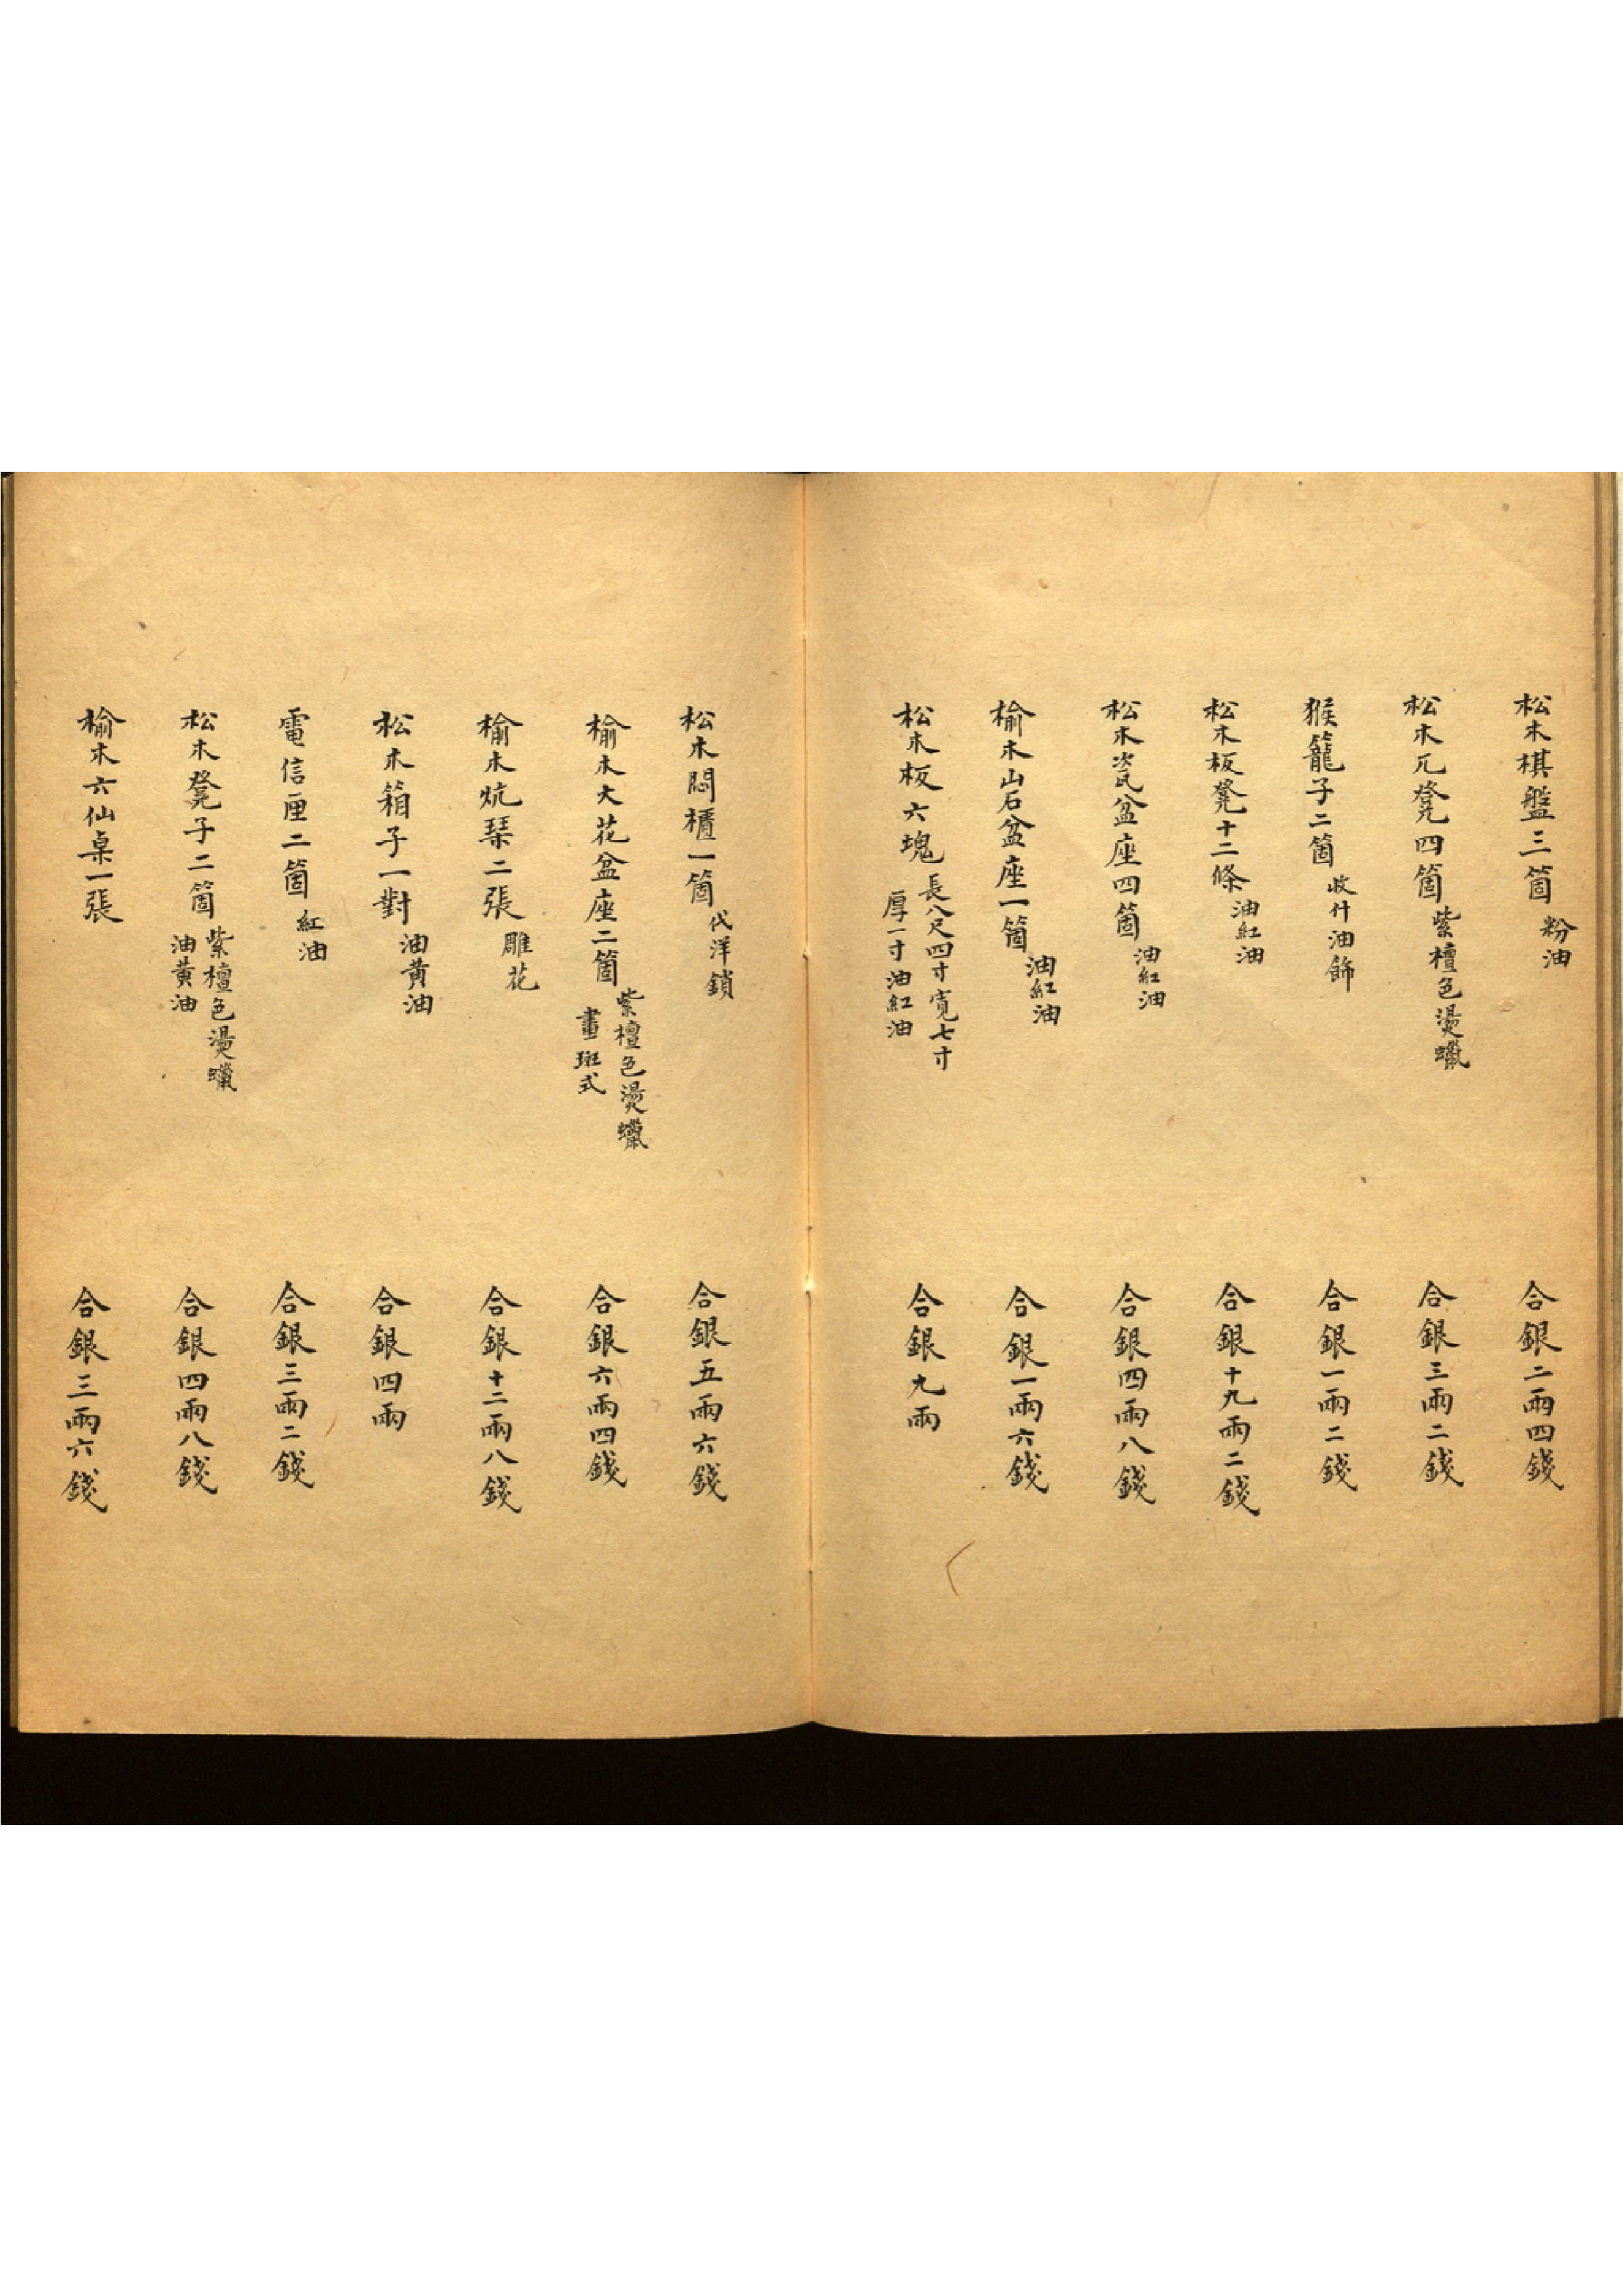 松木棋盤三箇 粉油 合銀二兩四錢
松木兀凳四箇 紫檀色燙蠟 合銀三兩二錢
猴籠子二箇 收什油飾 合銀一兩二錢
松木板凳十二條 油紅油 合銀十九兩二錢
松木瓷盆座四箇 油紅油 合銀四兩八錢
榆木山石盆座一箇 油紅油 合銀一兩六錢
松木板六塊 長八尺四寸寬七寸 厚一寸油紅油 合銀九兩
松木悶櫃一箇 代洋鎖 合銀五兩六錢
榆木大花盆座二箇 紫檀色燙蠟 畫斑式 合銀六兩四錢
榆木炕琴二張 雕花 合銀十二兩八錢
松木箱子一對 油黄油 合銀四兩
電信匣二箇 紅油 合銀三兩二錢
松木凳子二箇 紫檀色燙蠟 油黄油 合銀四兩八錢
榆木六仙桌一張 合銀三兩六錢